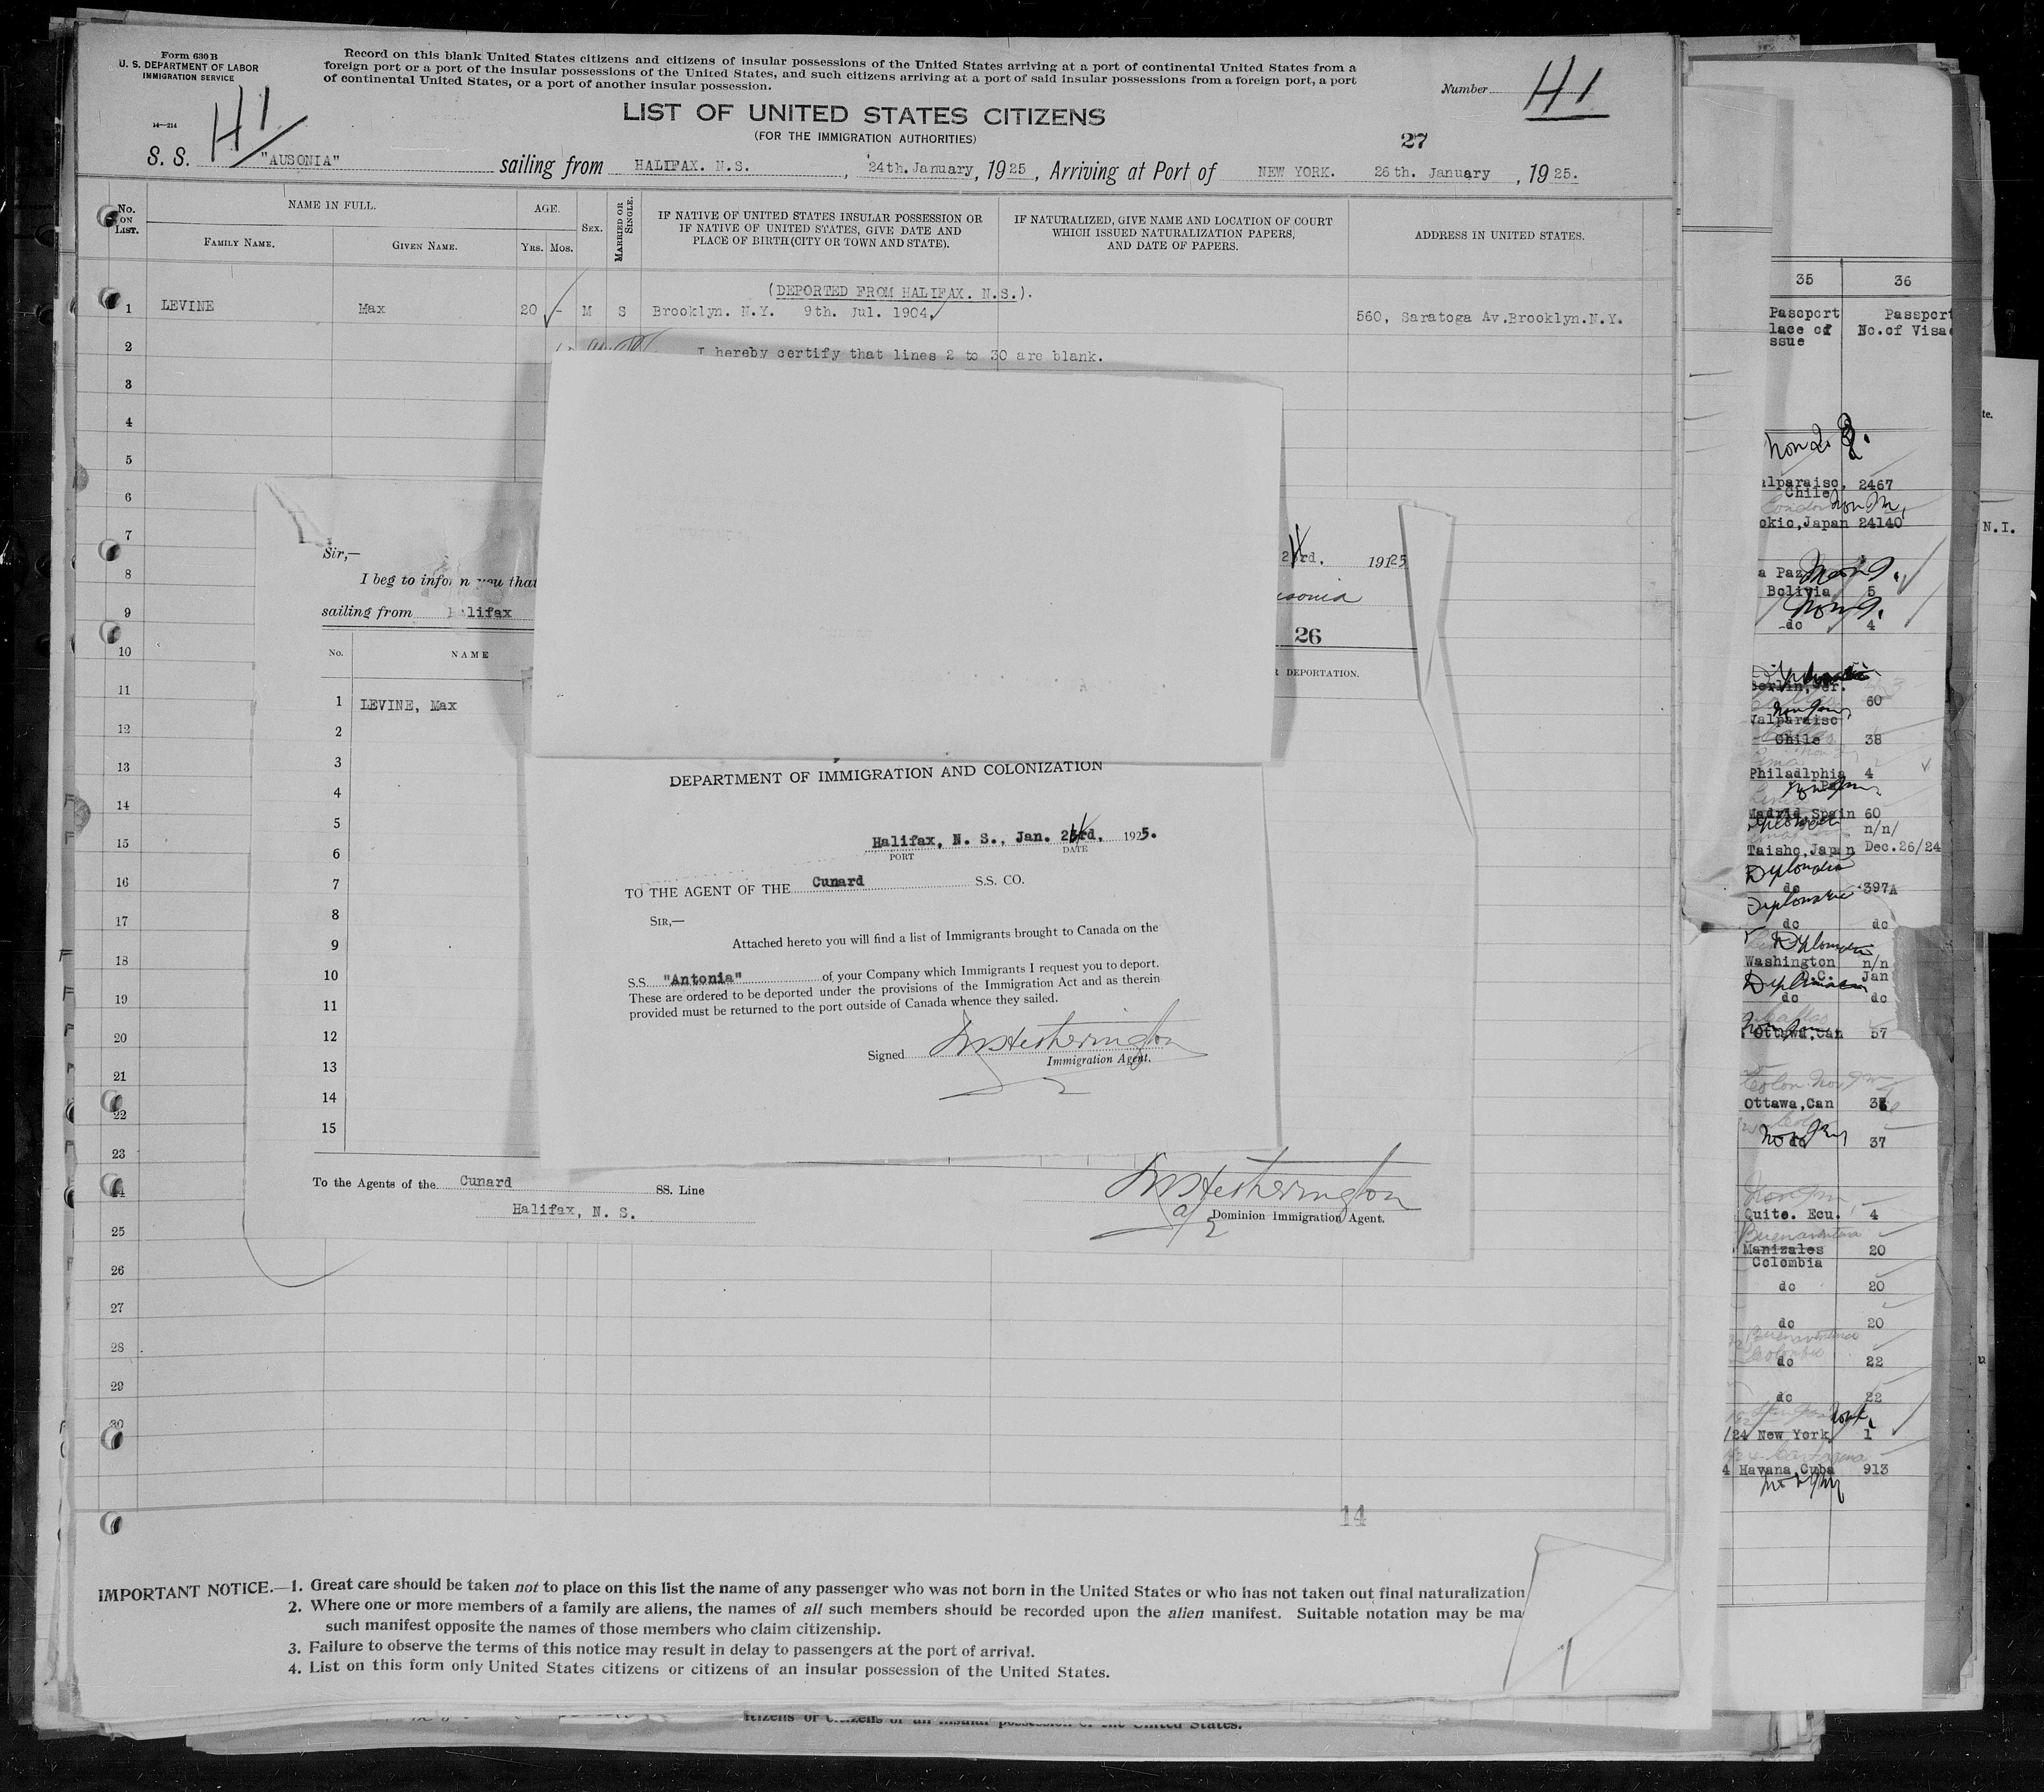 Form 630 B
U. S. DEPARTMENT OF LABOR
IMMIGRATION SERVICE
14—214
Record on this blank United States citizens and citizens of insular possessions of the United States arriving at a port of continental United States from a
foreign port or a port of the insular possessions of the United States, and such citizens arriving at a port of said insular possessions from a foreign port, a port
of continental United States, or a port of another insular possession.
Number 41
41
LIST OF UNITED STATES CITIZENS
(FOR THE IMMIGRATION AUTHORITIES)
27
S. S. "AUSONIA" sailing from HALIFAX. N.S., 24th. January, 1925, Arriving at Port of NEW YORK. 26th. January, 1925.
No. ON LIST.
NAME IN FULL.
FAMILY NAME.
GIVEN NAME.
AGE.
YRS. MOS.
SEX.
MARRIED OR SINGLE.
IF NATIVE OF UNITED STATES INSULAR POSSESSION OR
IF NATIVE OF UNITED STATES, GIVE DATE AND
PLACE OF BIRTH (CITY OR TOWN AND STATE).
IF NATURALIZED, GIVE NAME AND LOCATION OF COURT
WHICH ISSUED NATURALIZATION PAPERS,
AND DATE OF PAPERS.
ADDRESS IN UNITED STATES.
(DEPORTED FROM HALIFAX. N.S.).
1 LEVINE Max 20 - M S Brooklyn. N.Y. 9th. Jul. 1904. 560, Saratoga Av.Brooklyn.N.Y.
2 I hereby certify that lines 2 to 30 are blank.
3
4
5
6
7
8
9
10
11
12
13
14
15
16
17
18
19
20
21
22
23
24
25
26
27
28
29
30
Sir,—
I beg to inform you that
sailing from Halifax
23rd. 1925
26
No. NAME
DEPORTATION.
1 LEVINE, Max
2
3
4
5
6
7
8
9
10
11
12
13
14
15
To the Agents of the Cunard SS. Line
Halifax, N. S.
Dominion Immigration Agent.
DEPARTMENT OF IMMIGRATION AND COLONIZATION
Halifax, N. S., Jan. 23rd, 1925.
PORT DATE
TO THE AGENT OF THE Cunard S.S. CO.
SIR,—
Attached hereto you will find a list of Immigrants brought to Canada on the
S.S. "Antonia" of your Company which Immigrants I request you to deport.
These are ordered to be deported under the provisions of the Immigration Act and as therein
provided must be returned to the port outside of Canada whence they sailed.
Signed Hetherington
Immigration Agent.
14
IMPORTANT NOTICE.—1. Great care should be taken not to place on this list the name of any passenger who was not born in the United States or who has not taken out final naturalization
2. Where one or more members of a family are aliens, the names of all such members should be recorded upon the alien manifest. Suitable notation may be ma
such manifest opposite the names of those members who claim citizenship.
3. Failure to observe the terms of this notice may result in delay to passengers at the port of arrival.
4. List on this form only United States citizens or citizens of an insular possession of the United States.
35 36
Passport Passport
lace of No.of Visa
ssue
alparaiso, 2467
Chile
okio,Japan 24140
N.I.
a Paz
Bolivia 5
do 4
60
Valparaiso
Chile 38
Philadlphia 4
Madrid,Spain 60
n/n/
Taisho,Japan Dec.26/24
Diplomatic
do 397A
Diplomatic
do do
Washington n/n
D.C. Jan
do do
Ottawa,Can 57
Ottawa,Can
do 37
Quito. Ecu. 4
Buenaventura
Manizales 20
Colombia
do 20
do 20
do 22
do 22
/24 New York 1
4 Havana,Cuba 913